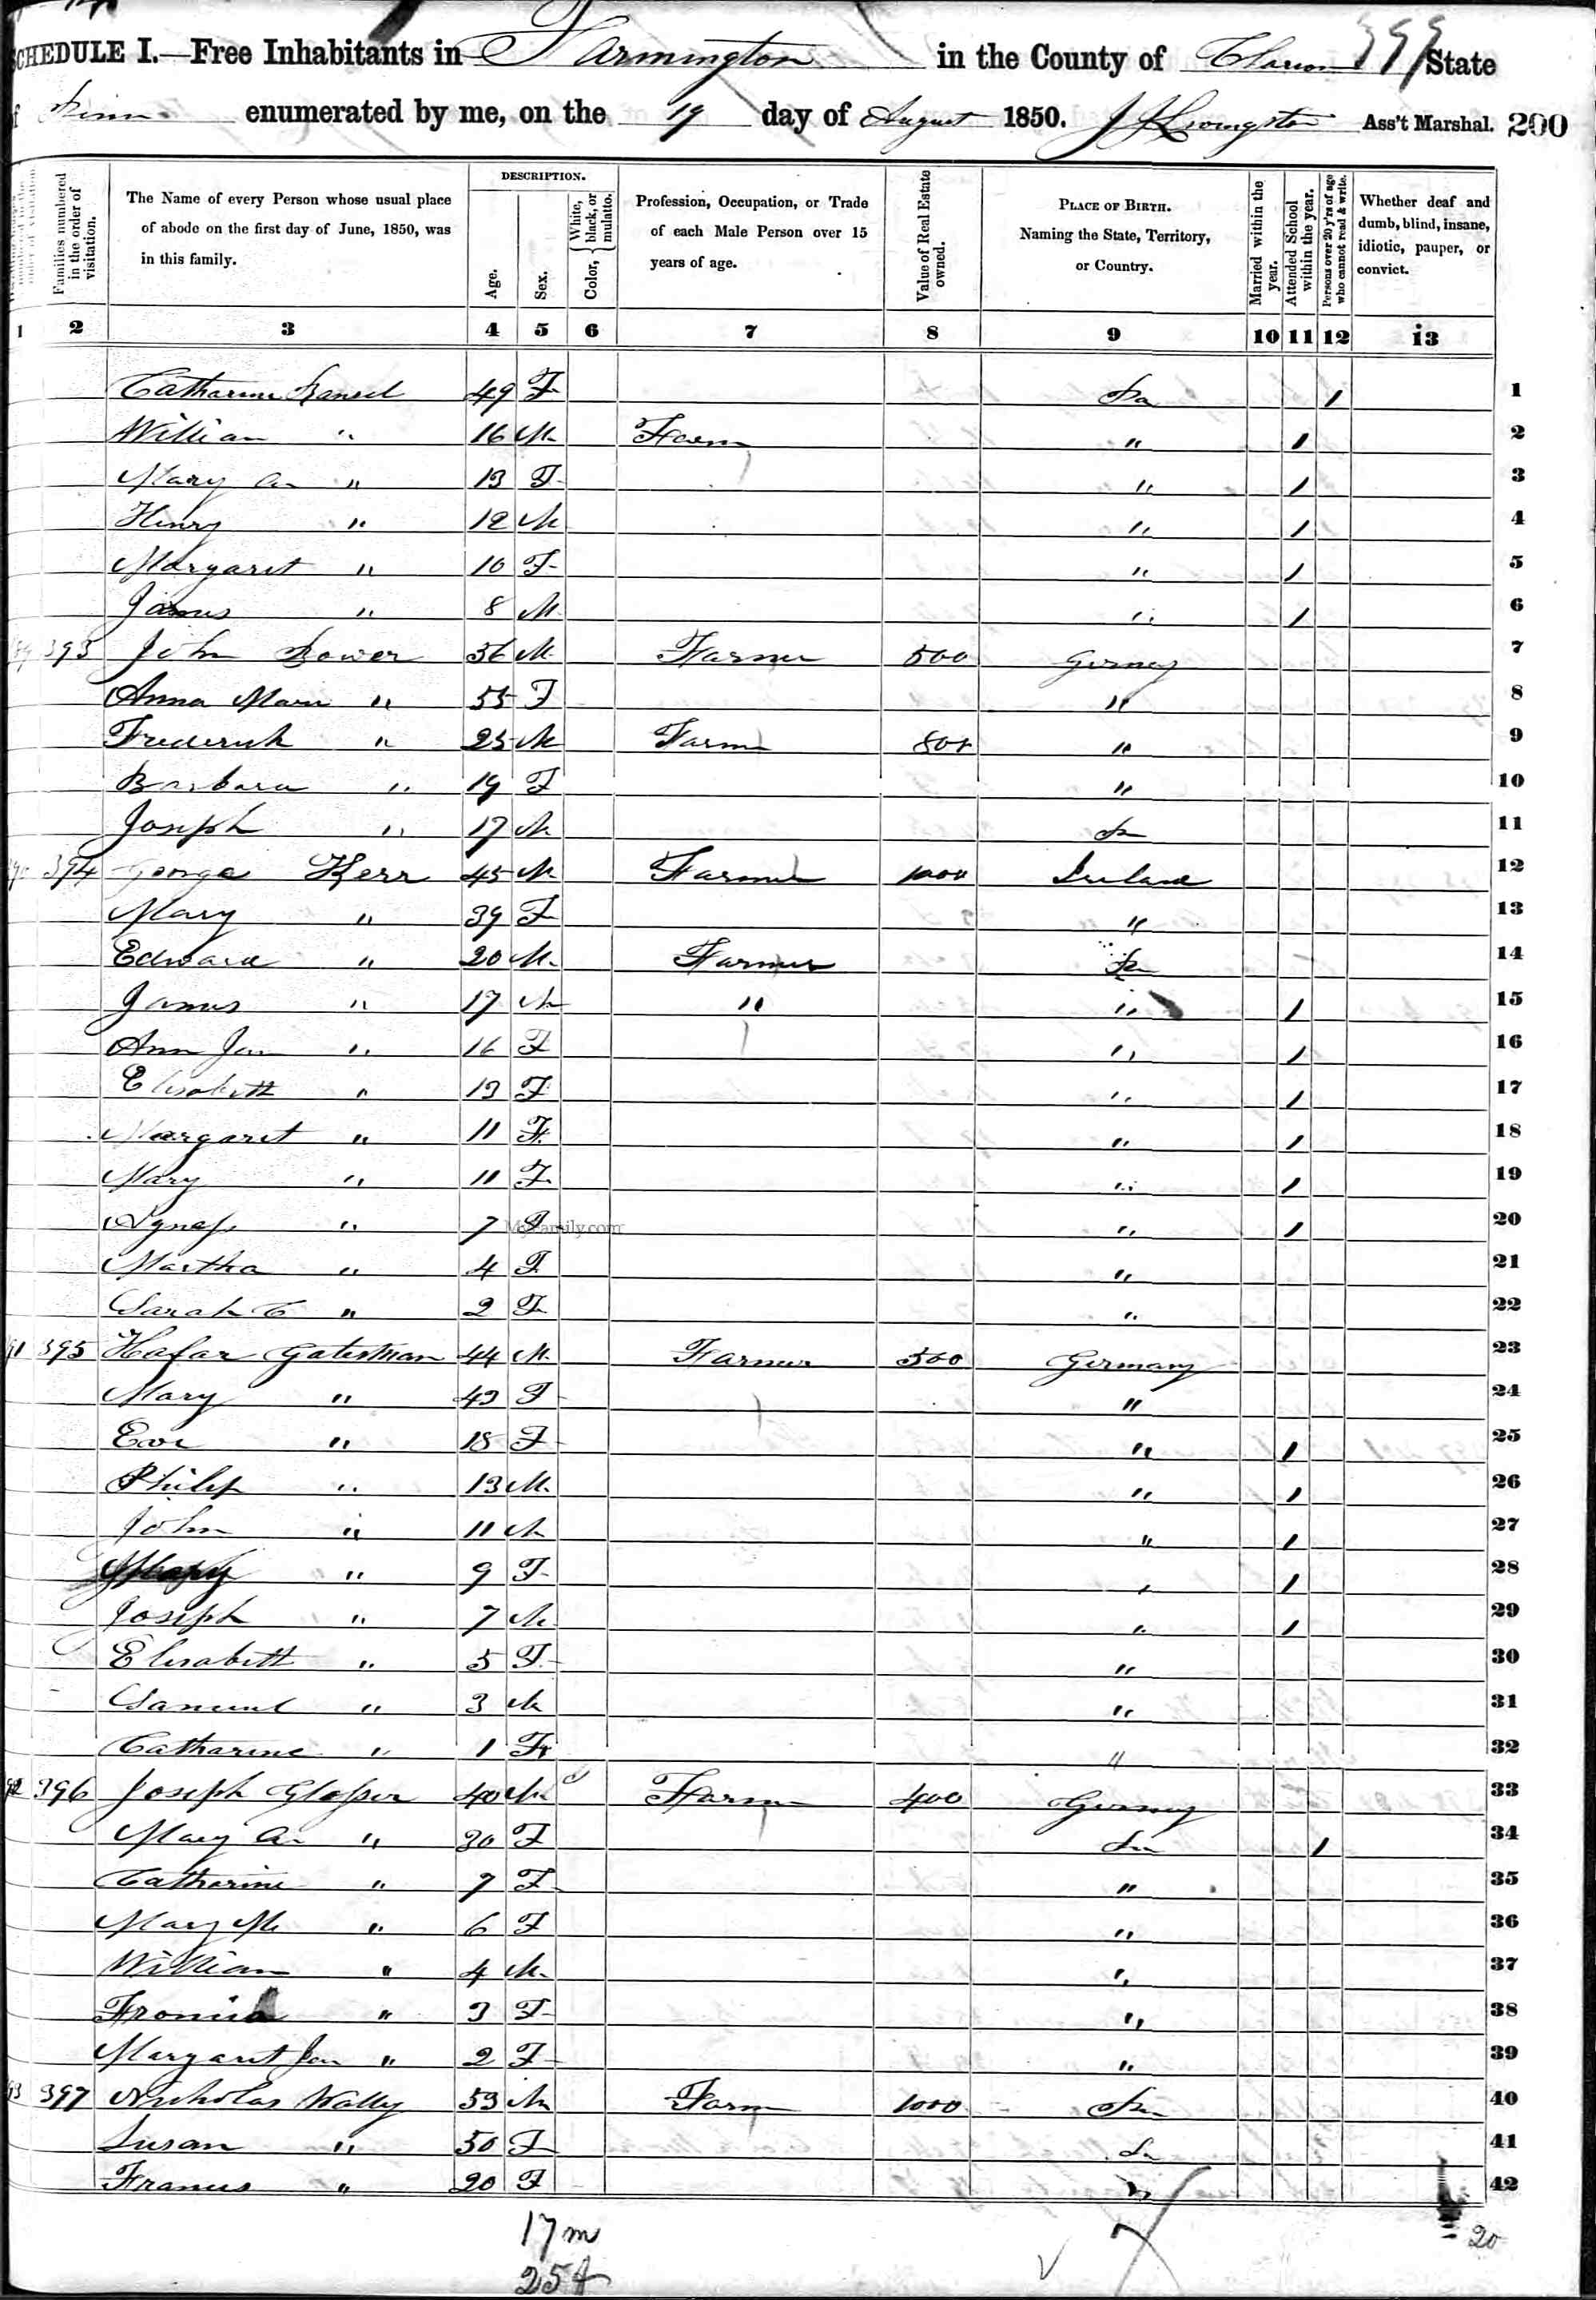 SCHEDULE I.—Free Inhabitants in Farmington in the County of Clarion 399 State
of Penn enumerated by me, on the 19 day of August 1850. J J Livingston Ass't Marshal. 200
Families numbered in the order of visitation.
The Name of every Person whose usual place of abode on the first day of June, 1850, was in this family.
DESCRIPTION.
Age.
Sex.
Color, { White, black, or mulatto.
Profession, Occupation, or Trade of each Male Person over 15 years of age.
Value of Real Estate owned.
PLACE OF BIRTH. Naming the State, Territory, or Country.
Married within the year.
Attended School within the year.
Persons over 20 y'rs of age who cannot read & write.
Whether deaf and dumb, blind, insane, idiotic, pauper, or convict.
1 2 3 4 5 6 7 8 9 10 11 12 13
Catharine 49 F Pa 1 1
William " 16 M Farm " 1 2
Mary An " 13 F " 1 3
Henry " 12 M " 1 4
Margaret " 10 F " 1 5
James " 8 M " 1 6
393 John Bower 56 M Farmer 500 Germany 7
Anna Maria " 55 F " 8
Frederick " 25 M Farm 800 " 9
Barbara " 19 F " 10
Joseph " 17 M Pa 11
394 George Kerr 45 M Farmer 1000 Ireland 12
Mary " 39 F " 13
Edward " 20 M Farmer Pa 14
James " 17 M " " 1 15
Ann Jan " 16 F " 1 16
Elisabeth " 13 F " 1 17
Margaret " 11 F " 1 18
Mary " 11 F " 1 19
Agness " 7 F " 1 20
MyFamily.com
Martha " 4 F " 21
Sarah C " 2 F " 22
91 395 Gatesman 44 M Farmer 500 Germany 23
Mary " 43 F " 24
Eve " 18 F " 1 25
Philip " 13 M " 1 26
John " 11 M " 1 27
Mary " 9 F " 1 28
Joseph " 7 M " 1 29
Elisabeth " 5 F " 30
Samuel " 3 M " 31
Catharine " 1 F " 32
92 396 Joseph Glosser 40 M Farm 400 Germany 33
Mary An " 30 F Pa 1 34
Catharine " 7 F " 35
Mary M " 6 F " 36
William " 4 M " 37
" 3 F " 38
Margaret Jan " 2 F " 39
93 397 Nicholas Wally 53 M Farm 1000 Pa 40
Susan " 50 F Pa 41
Francis " 20 F " 42
17 m
25 f
20